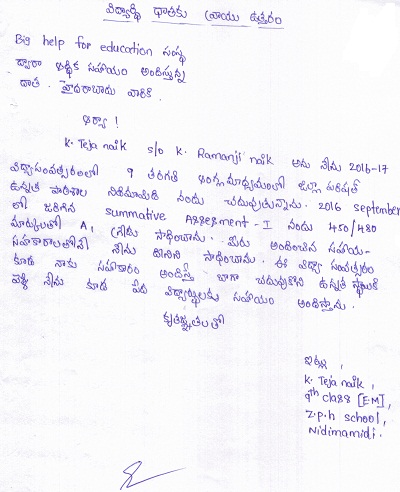 విద్యార్థి దాతకు వ్రాయు ఉత్తరం
Big help for education సంస్థ
ద్వారా ఆర్థిక సహాయం అందిస్తున్న
దాత. హైదరాబాదు వారికి.
ఆర్యా!
K. Teja naik s/o K. Ramanji naik అను నేను 2016-17
విద్యాసంవత్సరంలో 9 తరగతి ఆంగ్లమాధ్యమంలో జిల్లా పరిషత్
ఉన్నత పాఠశాల నిడిమామిడి నందు చదువుతున్నాను. 2016 september
లో జరిగిన summative Assessment - I నందు 450/480
మార్కులతో A1 గ్రేడు సాధించాను. మీరు అందించిన సహాయ-
సహకారాలతోనే నేను దీనిని సాధించాను. ఈ విద్యా సంవత్సరం
కూడ నాకు సహకారం అందిస్తే బాగా చదువుకొని ఉన్నత స్థాయికి
వెళ్లి నేను కూడ పేద విద్యార్థులకు సహాయం అందిస్తాను.
కృతజ్ఞతలతో
ఇట్లు,
K. Teja naik,
9th class [E.M],
Z.p.h school,
Nidimamidi.